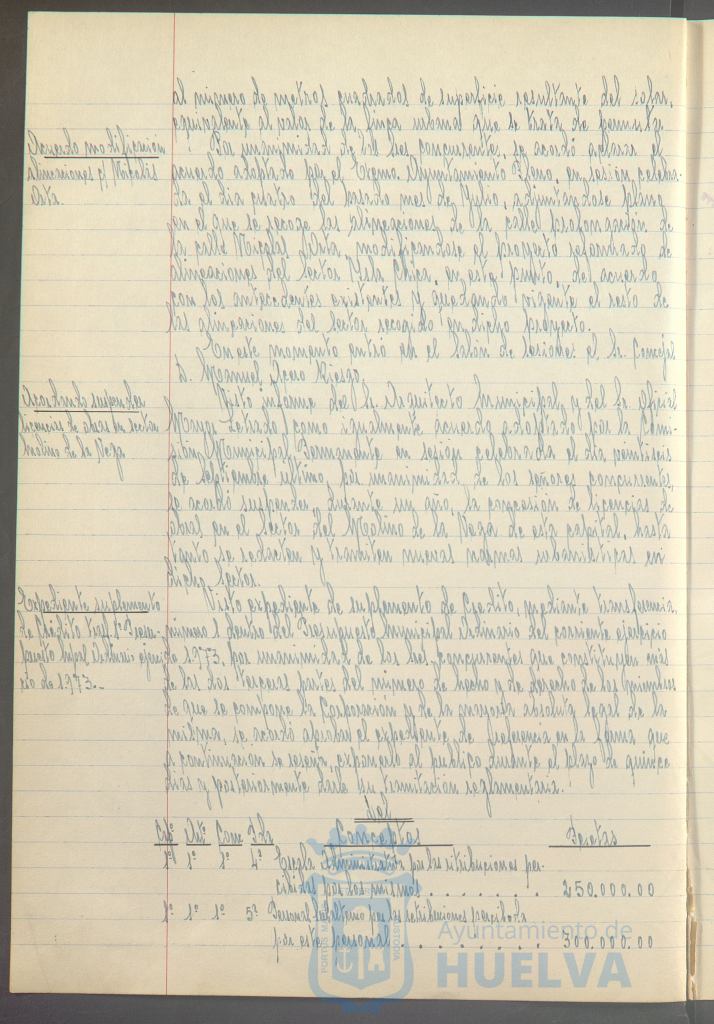 al número de metros cuadrados de superficie resultante del solar,
equivalente al valor de la finca urbana que se trata de permutar.
Acuerdo modificación
alineaciones c/ Nicolás
Orta.
Por unanimidad de los Sres. concurrentes, se acordó aclarar el
acuerdo adoptado por el Excmo. Ayuntamiento Pleno, en sesión celebra-
da el día cuatro del pasado mes de Julio, adjuntándose plano
en el que se recoge las alineaciones de la calle prolongación de
la calle Nicolás Orta, modificándose el proyecto reformado de
alineaciones del sector Isla Chica, en este punto, de acuerdo
con los antecedentes existentes y quedando vigente el resto de
las alineaciones del sector recogido en dicho proyecto.
En este momento entró en el Salón de Sesiones el Sr. Concejal
D. Manuel Acero Riesgo.
Acordando suspender
licencias de obras en sector
Molino de la Vega
Visto informe del Sr. Arquitecto Municipal, y del Sr. Oficial
Mayor Letrado, como igualmente acuerdo adoptado por la Comi-
sión Municipal Permanente en sesión celebrada el día veintiseis
de septiembre último, por unanimidad de los señores concurrentes,
se acordó suspender durante un año, la concesión de licencias de
obras en el Sector del Molino de la Vega de esta capital, hasta
tanto se redacten y tramiten nuevas normas urbanísticas en
dicho Sector.
Expediente suplemento
de Crédito transf. 1ª Presu-
puesto Mpal. Ordinario ejerci-
cio de 1.973.-
Visto expediente de suplemento de Crédito, mediante transferencia,
número 1 dentro del Presupuesto Municipal Ordinario del corriente ejercicio
de 1.973, por unanimidad de los Sres. concurrentes que constituyen más
de las dos terceras partes del número de hecho y de derecho de los miembros
de que se compone la Corporación y de la mayoría absoluta legal de la
misma, se acordó aprobar el expediente de referencia en la forma que
a continuación se reseña, exponerlo al público durante el plazo de quince
días y posteriormente darle su tramitación reglamentaria.
Del
Capº Artº Conc Pda Conceptos Pesetas
1º 1º 1º 4ª Escala Administrativa por las retribuciones per-
cibidas por los mismos . . . . . . . 250.000.00
1º 1º 1º 5ª Personal Subalterno por las retribuciones percibida
por este personal . . . . . . . . 300.000.00
Ayuntamiento de
HUELVA